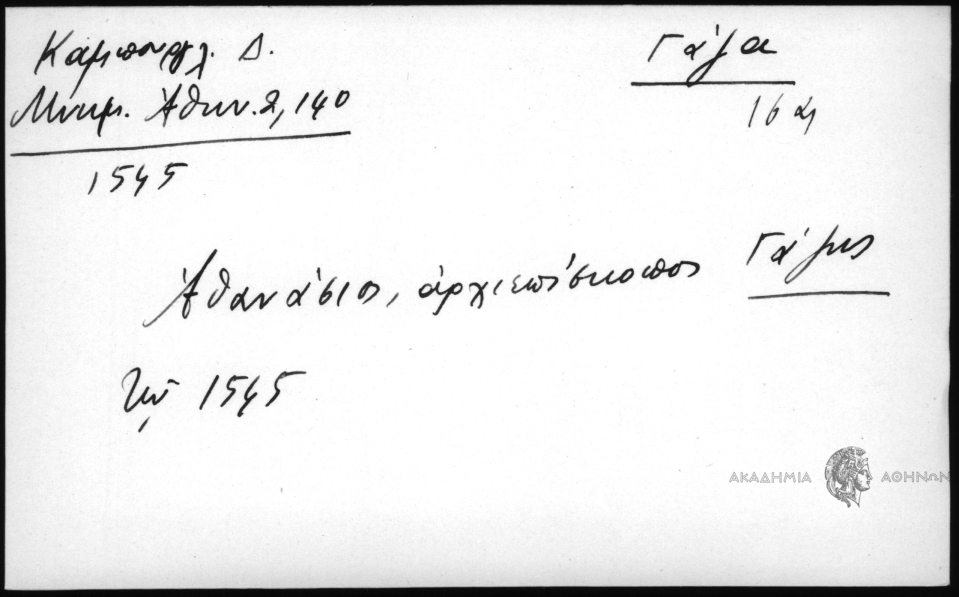 Καμπουρογλ. Δ.
Μνημ. Ἀθην. 2, 140
1545
Γάζα
16 α,
Ἀθανάσιος, ἀρχιεπίσκοπος Γάζης
τῷ 1545
ΑΚΑΔΗΜΙΑ ΑΘΗΝΩΝ